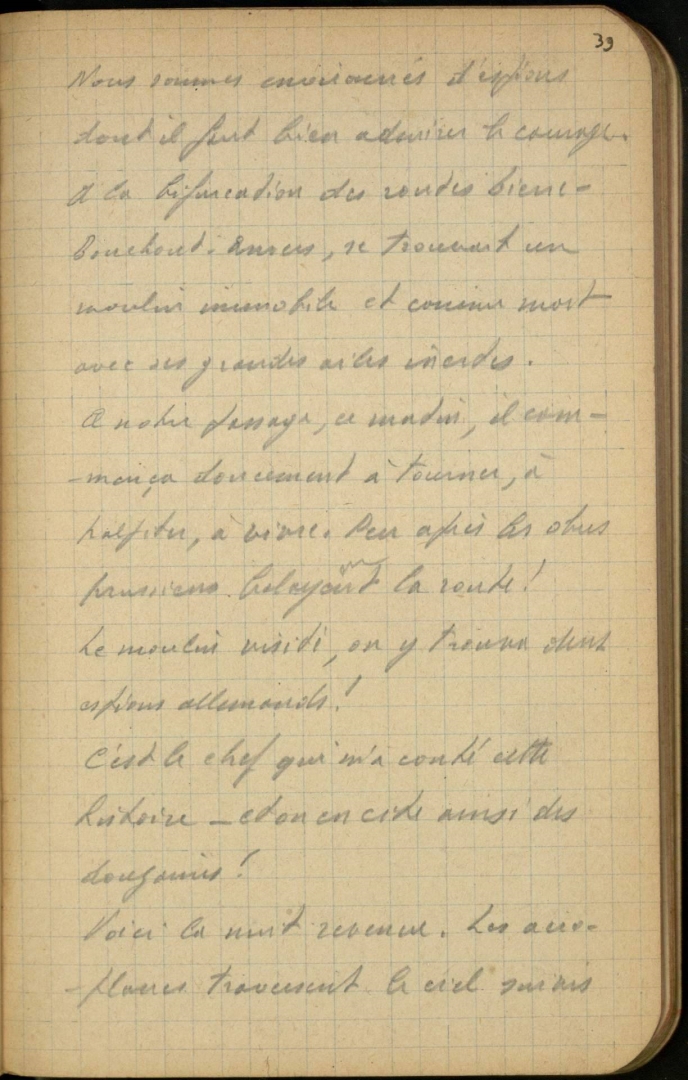 39
Nous sommes environnés d'espions
dont il faut bien admirer le courage.
A la bifurcation des routes Lierre-
Bouchout-Anvers, se trouvait un
moulin immobile et comme mort
avec ses grandes ailes inertes.
A notre passage, ce matin, il com-
-mença doucement à tourner, à
palpiter, à vivre. Peu après les obus
prussiens balayaient la route!
Le moulin visité, on y trouva deux
espions allemands!
C'est le chef qui m'a conté cette
histoire – et on en cite ainsi des
douzaines!
Voici la nuit revenue. Les aéro-
-planes traversent le ciel suivis